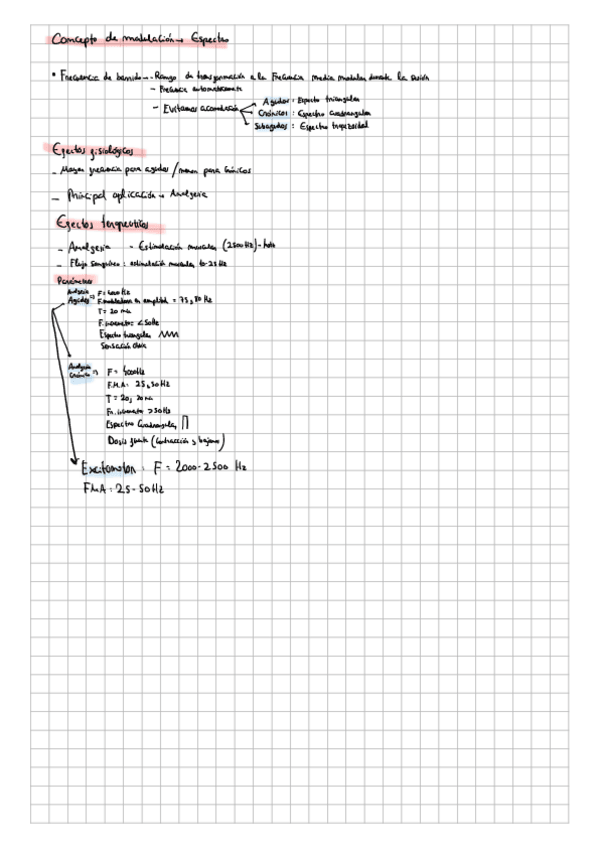 Concepto de modulación → Espectro
• Frecuencia de barrido -- Rango de transformación a la Frecuencia Media modulada durante la sesión
- Frecuencia automáticamente
- Evitamos acomodación
Agudos: Espectro triangular
Crónicos: Espectro cuadrangular
Subagudos: Espectro trapezoidal
Efectos fisiológicos
- Mayor frecuencia para agudos / menor para Crónicos
- Principal aplicación → Analgesia
Efectos terapeuticos
- Analgesia - Estimulación muscular (2500 Hz)
- Flujo Sanguíneo: estimulación muscular 10-25 Hz
Parámetros
Analgesia Agudos → F = 4000 Hz
F. moduladora en amplitud = 75, 80 Hz
T = 20 min
F. incremento: < 50Hz
Espectro triangular
Sensación
Analgesia Crónico → F = 4000Hz
F.M.A: 25, 50 Hz
T = 20, 30 min
Fr. incremento > 50 Hz
Espectro Cuadrangular
Dosis fuerte (Contracción y
Excitomotor: F = 2000-2500 Hz
F.M.A: 25-50 Hz